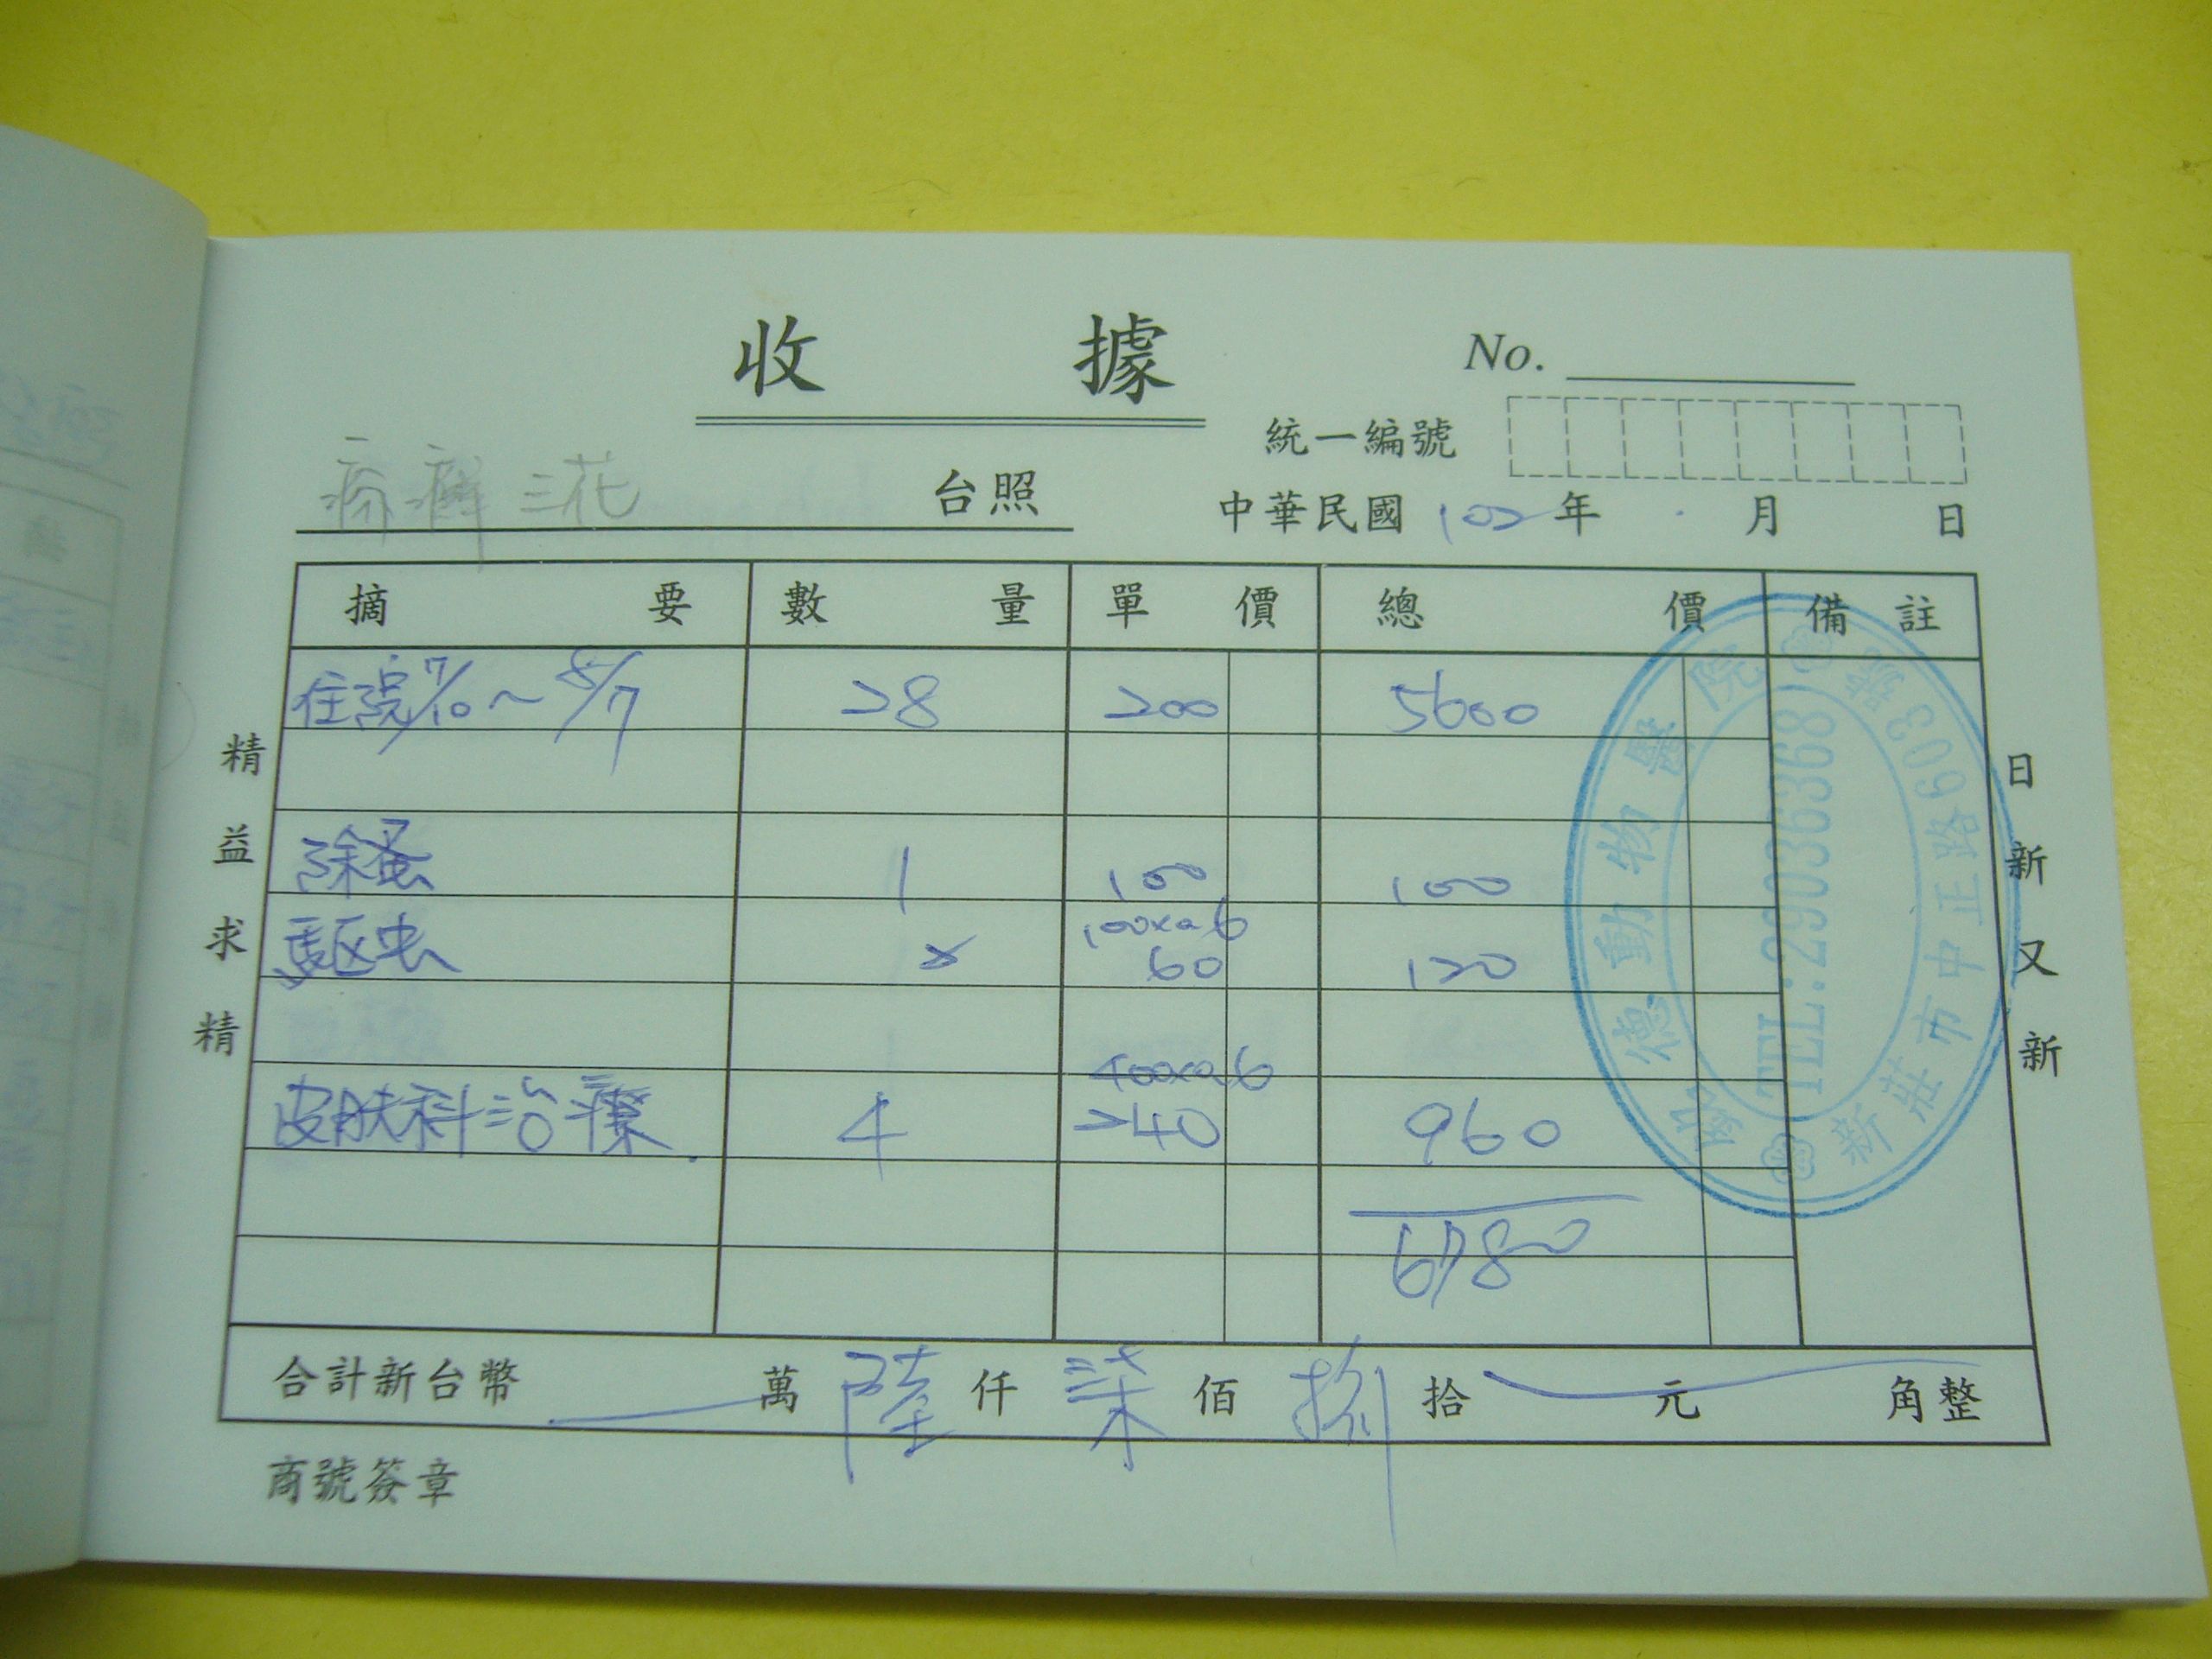 收據
No.
統一編號
三花 台照
中華民國 102 年 月 日
摘要 數量 單價 總價 備註
住院 7/10～8/7 28 200 5600
除蚤 1 100 100
100x0.6
驅虫 2 60 120
400x0.6
皮肤科治療 4 240 960
6780
合計新台幣 萬 陸 仟 柒 佰 捌 拾 元 角整
商號簽章
精益求精
日新又新
德動物醫院
TEL:29036368
新莊市中正路603號